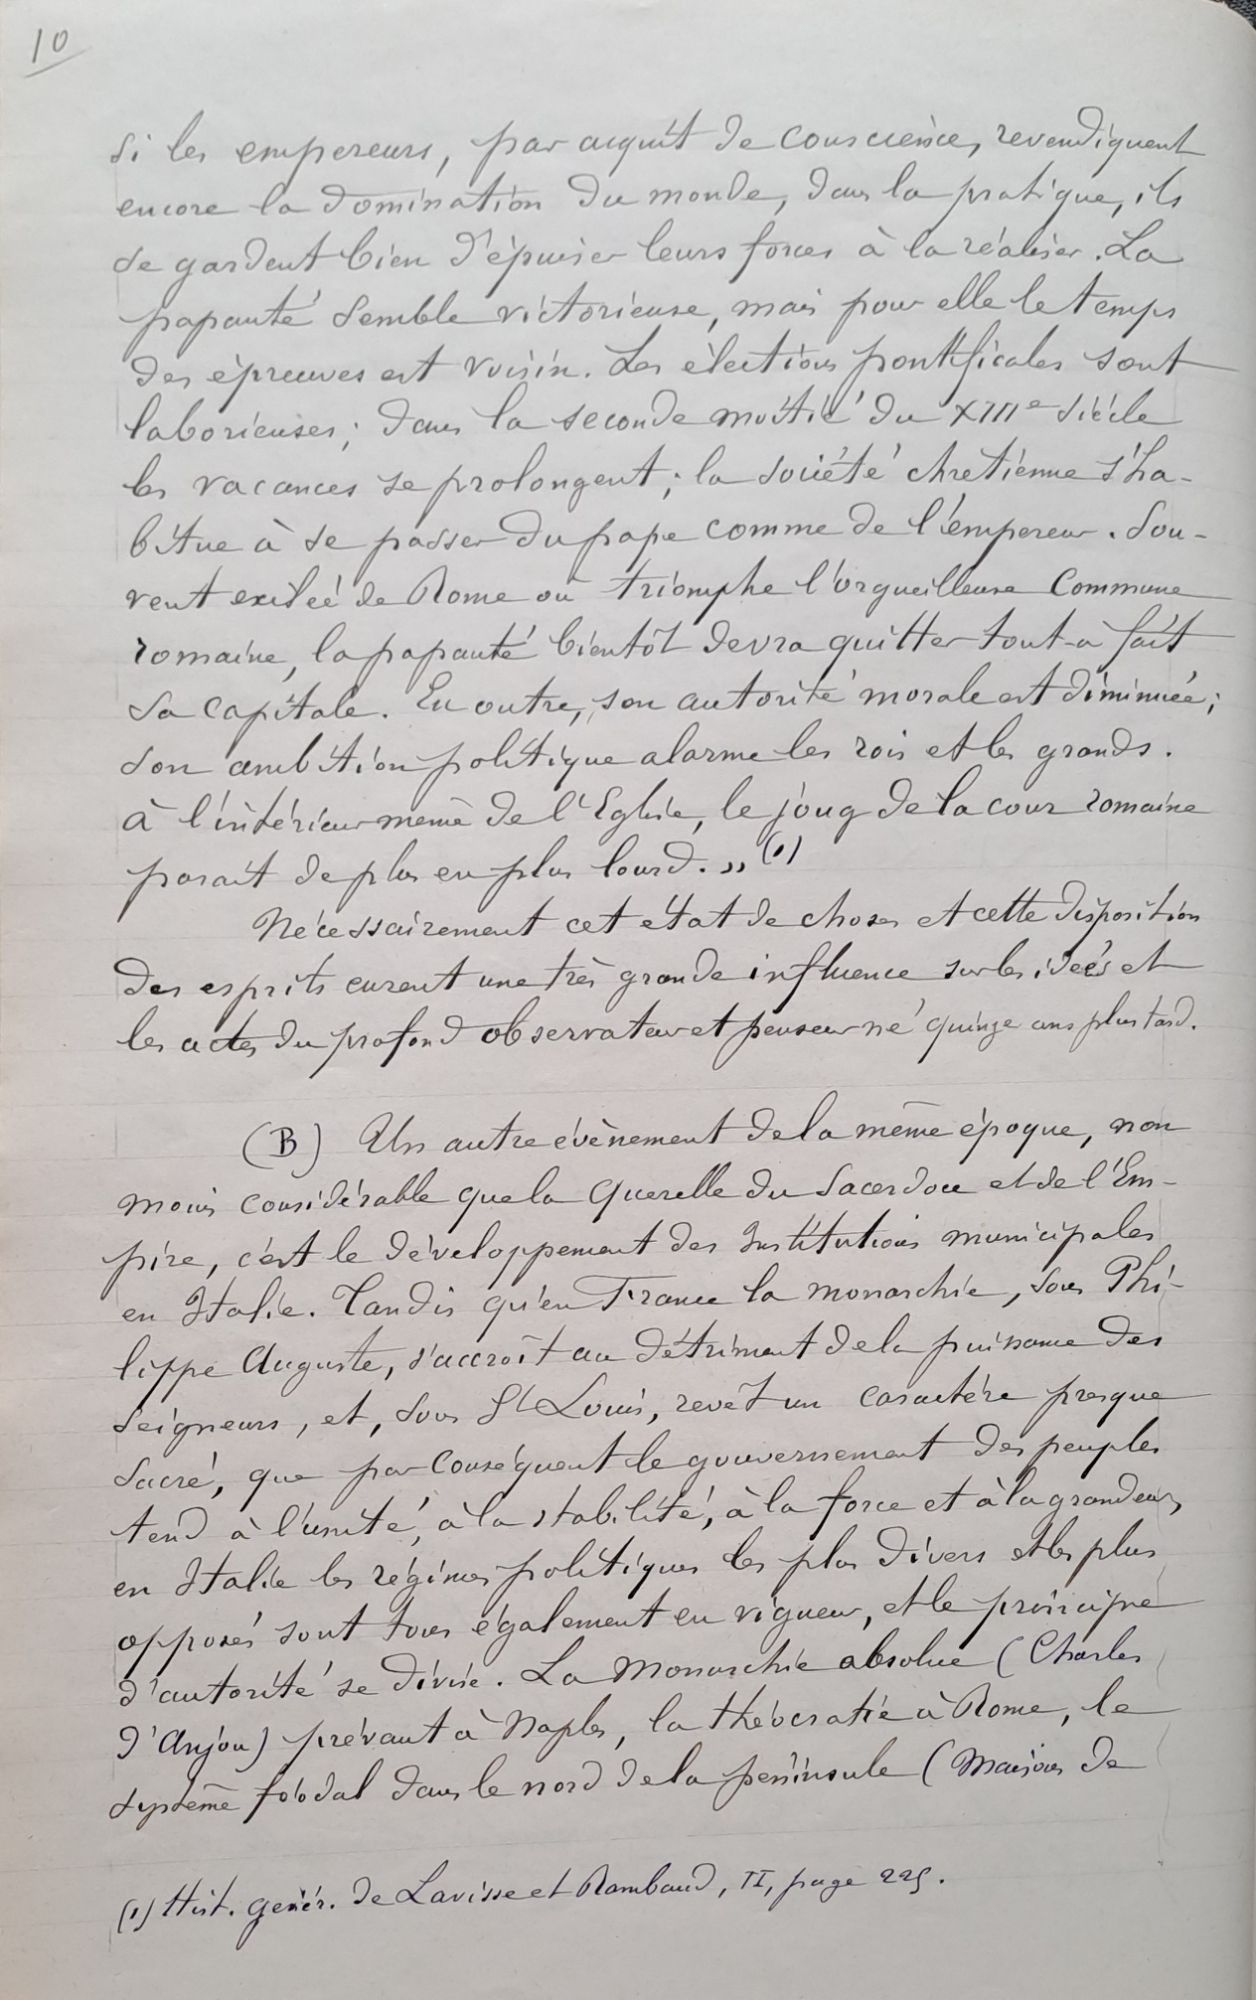 10
si les empereurs, par acquit de conscience, revendiquent
encore la domination du monde, dans la pratique, ils
se gardent bien d'épuiser leurs forces à la réaliser. La
papauté semble victorieuse, mais pour elle le temps
des épreuves est voisin. Les élections pontificales sont
laborieuses; dans la seconde moitié du XIIIe siècle
les vacances se prolongent; la société chrétienne s'ha-
bitue à se passer du pape comme de l'empereur. Sou-
vent exilée de Rome où triomphe l'orgueilleuse Commune
romaine, la papauté bientôt devra quitter tout-à fait
sa capitale. En outre, son autorité morale est diminuée;
son ambition politique alarme les rois et les grands.
à l'intérieur même de l'Eglise, le joug de la cour romaine
parait de plus en plus lourd. " (1)
Nécessairement cet état de choses et cette disposition
des esprits eurent une très grande influence sur les idées et
les actes du profond observateur et penseur né quinze ans plus tard.
(B) Un autre évènement de la même époque, non
moins considérable que la Querelle du Sacerdoce et de l'Em-
pire, c'est le développement des Institutions municipales
en Italie. Tandis qu'en France la monarchie, sous Phi-
lippe Auguste, s'accroît au détriment de la puissance des
seigneurs, et, sous St Louis, revêt un caractère presque
sacré, que par conséquent le gouvernement des peuples
tend à l'unité, à la stabilité, à la force et à la grandeur,
en Italie les régimes politiques les plus divers et les plus
opposés sont tous également en vigueur, et le principe
d'autorité se divise. La Monarchie absolue (Charles
d'Anjou) prévaut à Naples, la théocratie à Rome, le
système féodal dans le nord de la péninsule (Maisons de
(1) Hist. génér. de Lavisse et Rambaud, II, page 225.